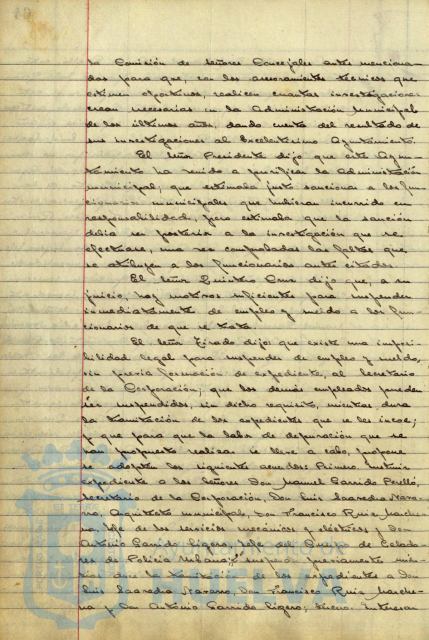 la Comisión de señores Concejales antes menciona-
dos para que, con los asesoramientos técnicos que
estimen oportunos, realicen cuantas investigaciones
crean necesarias en la Administración Municipal
de los últimos años, dando cuenta del resultado de
sus investigaciones al Excelentísimo Ayuntamiento.
El señor Presidente dijo que este Ayun-
tamiento ha venido a purificar la Administración
municipal; que estimaba justo sancionar a los fun-
cionarios municipales que hubieran incurrido en
responsabilidad, pero estimaba que la sanción
debía ser posterior a la investigación que se
efectuase, una vez comprobadas las faltas que
se atribuyen a los funcionarios antes citados.
El señor Quintero Cruz dijo que, a su
juicio, hay motivos suficientes para suspender
inmediatamente de empleo y sueldo a los fun-
cionarios de que se trata.
El señor Tirado dijo: que existe una imposi-
bilidad legal para suspender de empleo y sueldo,
sin previa formación de expediente, al Secretario
de la Corporación; que los demás empleados pueden
ser suspendidos, sin dicho requisito, mientras dura
la tramitación de los expedientes que se les incoe;
y que para que la labor de depuración que se
han propuesto realizar se lleve a cabo, propone
se adopten los siguientes acuerdos: Primero: Instruir
expediente a los señores Don Manuel Garrido Perelló,
Secretario de la Corporación, Don Luis Saavedra Nava-
rro, Arquitecto municipal, Don Francisco Ruiz Marche-
na, Jefe de los servicios mecánicos y eléctricos y Don
Antonio Garrido Ligero, Jefe del de Celado-
res de Policía Urbana; suspender previamente mien-
tras dure la tramitación de los expedientes a Don
Luis Saavedra Navarro, Don Francisco Ruiz Marche-
na y Don Antonio Garrido Ligero; Interesar